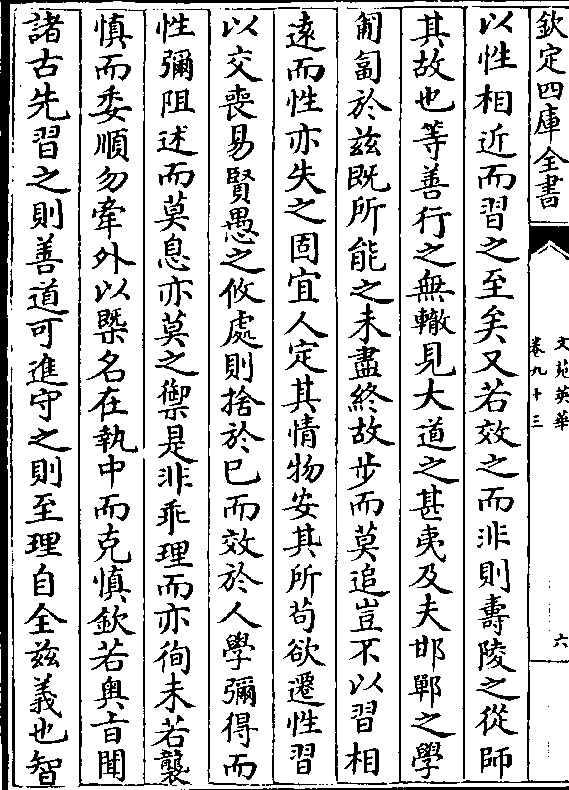 欽定四庫全書
文苑英華
卷九十三
六
以性相近而習之至矣又若效之而非則壽陵之從師
其故也等善行之無轍見大道之甚夷及夫邯鄲之學
匍匐於兹既所能之未盡終故步而莫追豈不以習相
逺而性亦失之固宜人定其情物安其所苟欲遷性習
以交喪易賢愚之攸處則捨於已而效於人學彌得而
性彌阻述而莫息亦莫之禦是非乖理而亦徇未若襲
慎而委順勿牽外以槩名在執中而克慎欽若奥㫖聞
諸古先習之則善道可進守之則至理自全兹義也智